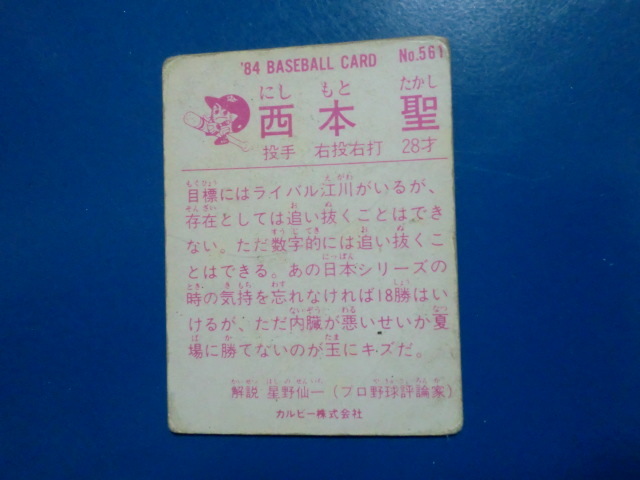 '84 BASEBALL CARD No.561
にし もと たかし
西本 聖
投手 右投右打 28才
目標にはライバル江川がいるが、
存在としては追い抜くことはでき
ない。ただ数字的には追い抜くこ
とはできる。あの日本シリーズの
時の気持を忘れなければ18勝はい
けるが、ただ内臓が悪いせいか夏
場に勝てないのが玉にキズだ。
解説 星野仙一(プロ野球評論家)
カルビー株式会社